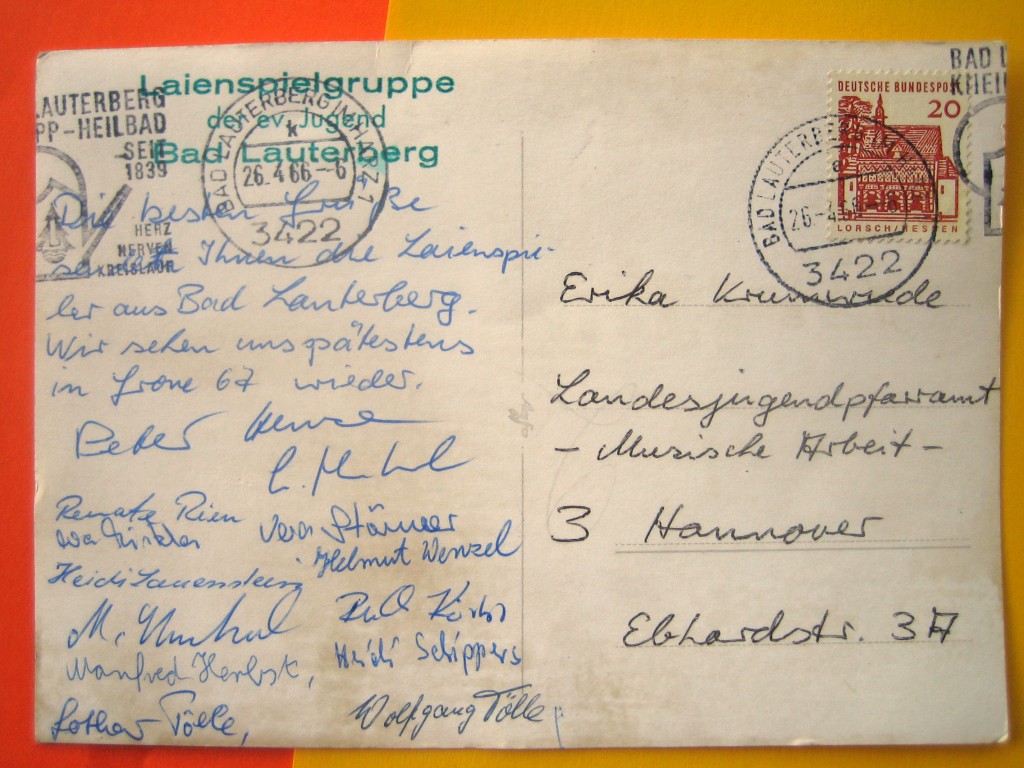 Laienspielgruppe
der ev. Jugend
Bad Lauterberg
LAUTERBERG
PP-HEILBAD
SEIT
1839
HERZ
NERVEN
KREISLAUF
BAD LAUTERBERG IM HARZ 1
k
26.4.66-6
3422
Die besten Grüße
senden Ihnen die Laienspie-
ler aus Bad Lauterberg.
Wir sehen uns spätestens
in Grone 67 wieder.
Peter
Renate Rien
Vera Störmer
Helmut Wenzel
Heidi Lauenstein
M.
Heidi Schippers
Manfred Herbst,
Lothar Tölle,
Wolfgang Tölle
BAD L
KNEIP
DEUTSCHE BUNDESPOST
20
LORSCH/HESSEN
BAD LAUTERBERG IM
26.4.66
3422
Erika Krumwiede
Landesjugendpfarramt
- Musische Arbeit -
3 Hannover
Ebhardstr. 3A